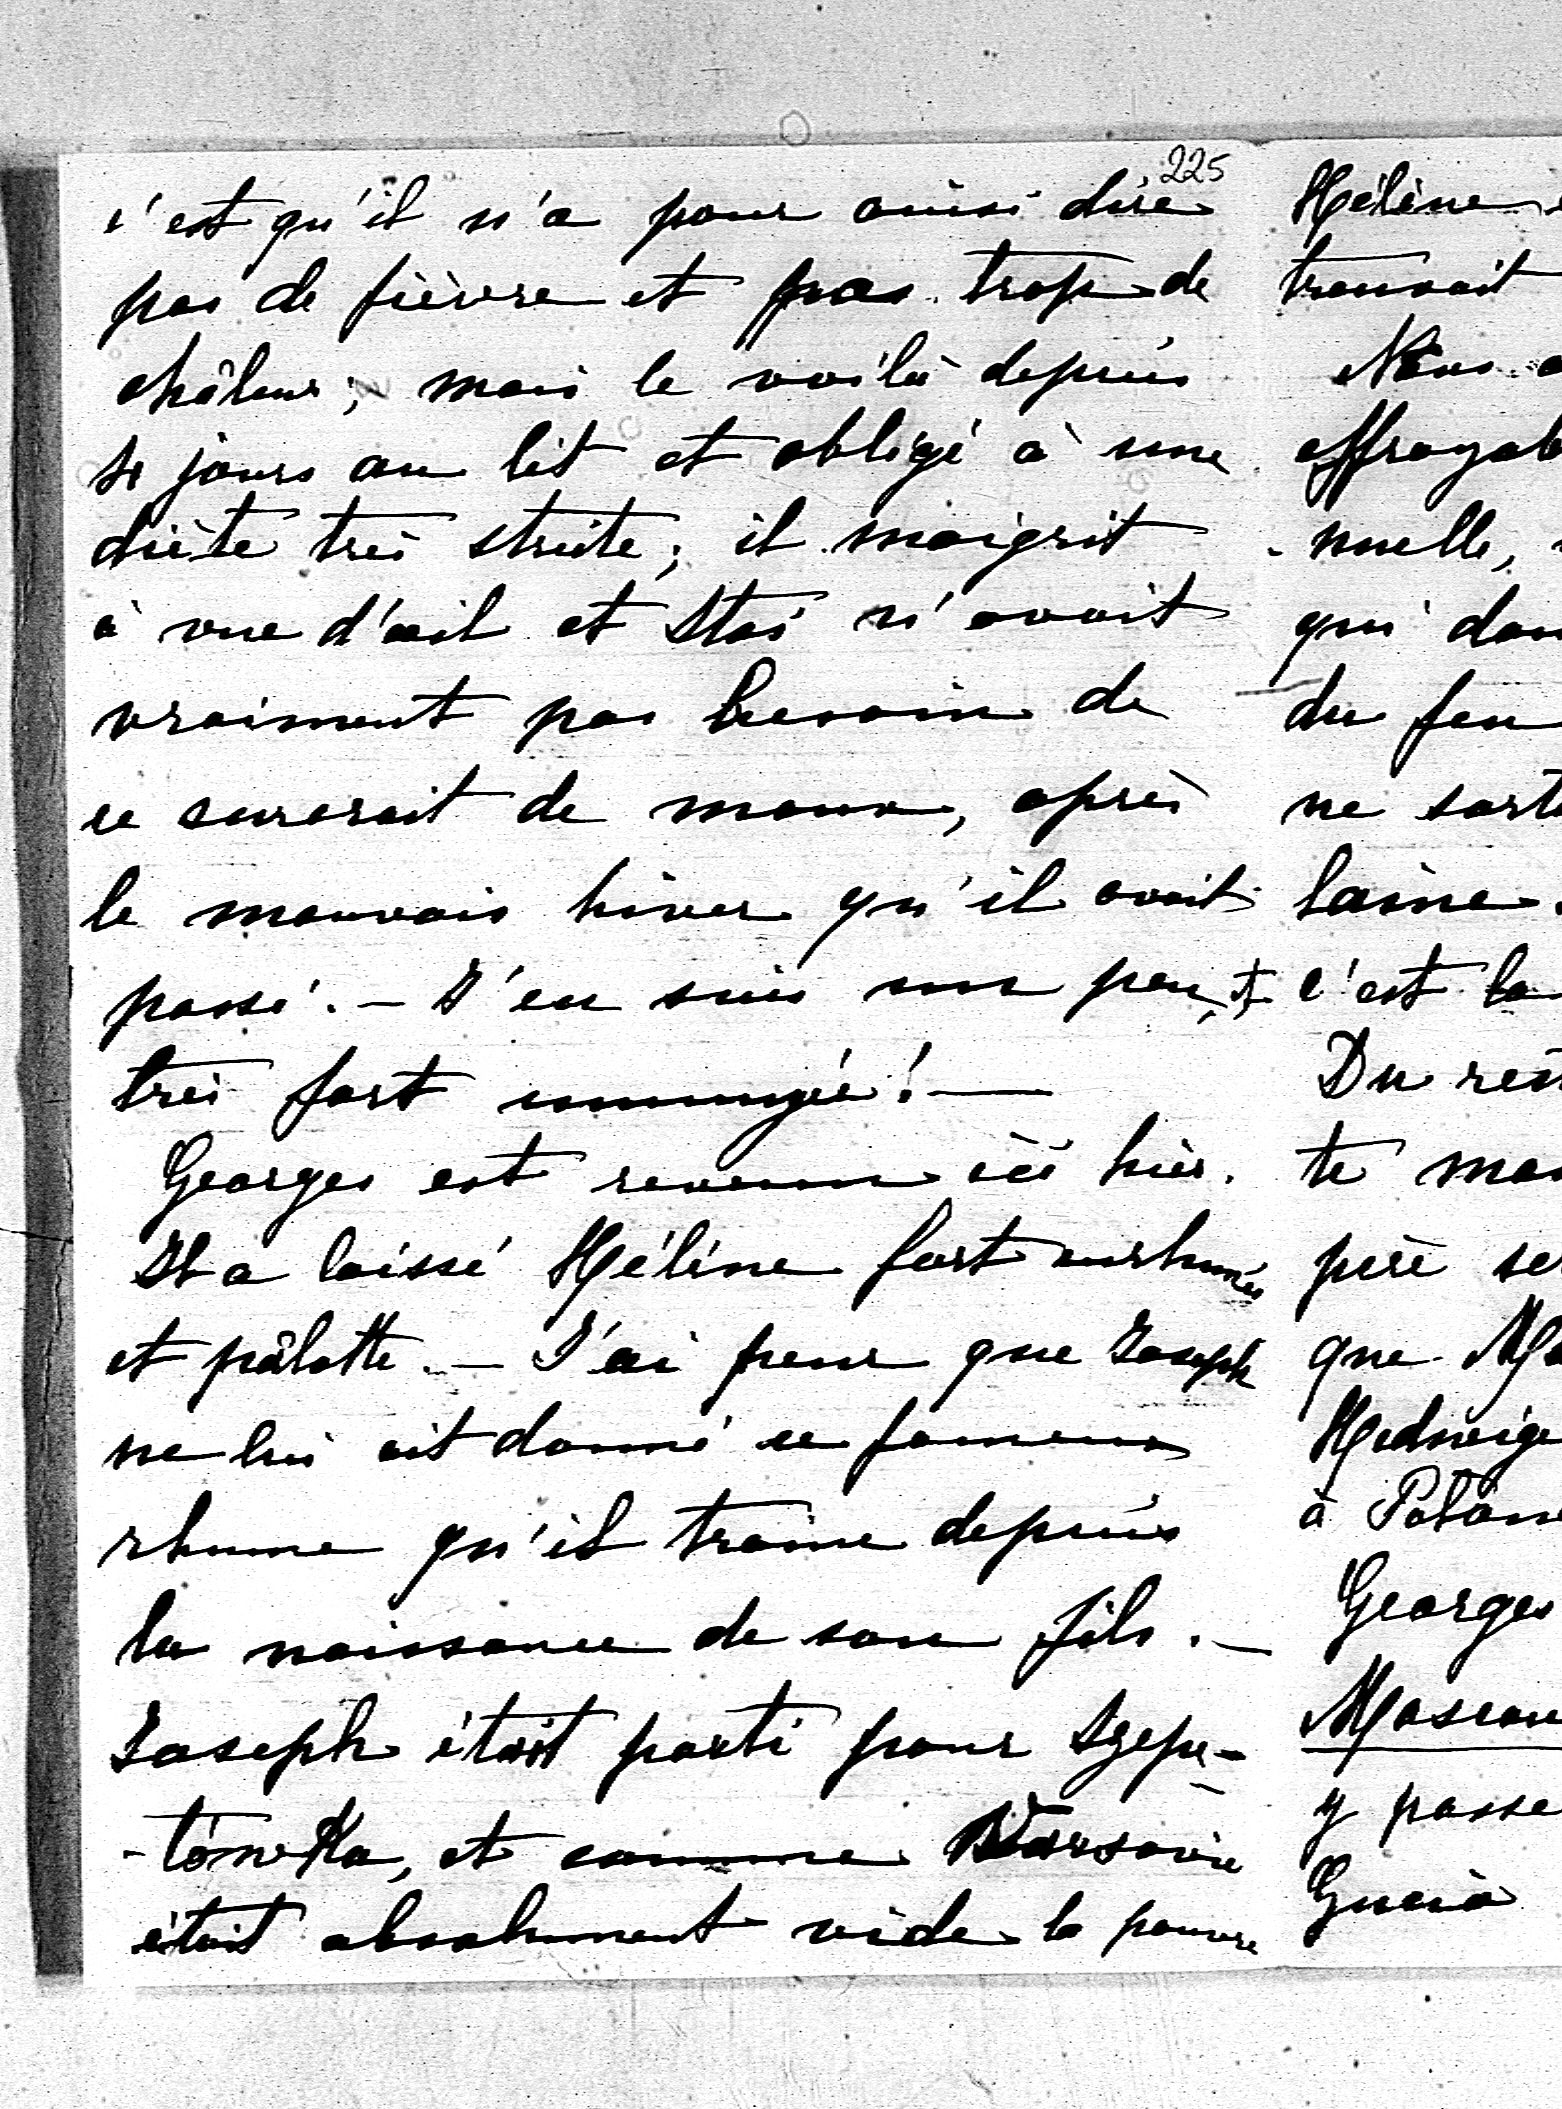 225
c'est qu'il n'a pour ainsi dire
pas de fièvre et pas trop de
châleur; mais le voilà depuis
jours au lit et obligé à une
diète très stricte; il maigrit
à vue d'œil et Staś n'avait
vraiment pas besoin de
ce surcroit de maux, après
le mauvais hiver qu'il avait
passé. — J'en suis un peu, et
très fort ennuyée! —
Georges est revenu ici hier.
Il a laissé Hélène fort enrhumée
et pâlotte. — J'ai peur que Joseph
ne lui ait donné ce fameux
rhume qu'il traine depuis
la naissance de son fils. —
Joseph était parti pour Szepe-
-tówka, et comme Varsovie
était absolument vide la pauvre
Hélène
trouvait
Nous
effroyab
-nuelle,
qui dan
du feu
ne sort
laine.
c'est la
Du rest
te man
père se
que Ma
Hedwige
à Polon
Georges
Moscou
y passe
Gucia